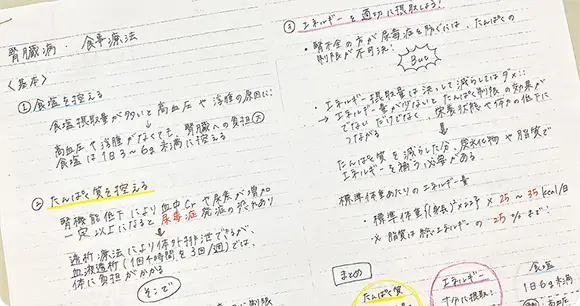 腎臓病・食事療法
〈基本〉
① 食塩を控える
食塩摂取量が多いと高血圧や浮腫の原因に
↓
高血圧や浮腫がなくても、腎臓への負担大
食塩は1日3～6g未満に控える
② たんぱく質を控える
腎機能低下により血中Crや尿素が増加
一定以上になると尿毒症発症の恐れあり
↓
透析療法により体外排泄できるが、
血液透析(1回4時間を3回/週)では、
体に負担がかかる
そこで
制限
③ エネルギーを適切に摂取しよう!
・腎不全の方が尿毒症を防ぐには、たんぱくの
制限が不可決。
But
・エネルギー摂取量は決して減らしてはダメ!!
→ エネルギー量が少ないとたんぱく制限の効果が
でないだけでなく、栄養状態や体力の低下に
つながる
↓
たんぱく質を減らした分、炭水化物や脂質で
エネルギーを補う必要がある
標準体重あたりのエネルギー量
標準体重{(身長)²×22} × 25～35 kcal/日
※ 脂質は総エネルギーの25%まで!
まとめ
たんぱく質
エネルギー
十分に摂取!
食塩
1日6g未満